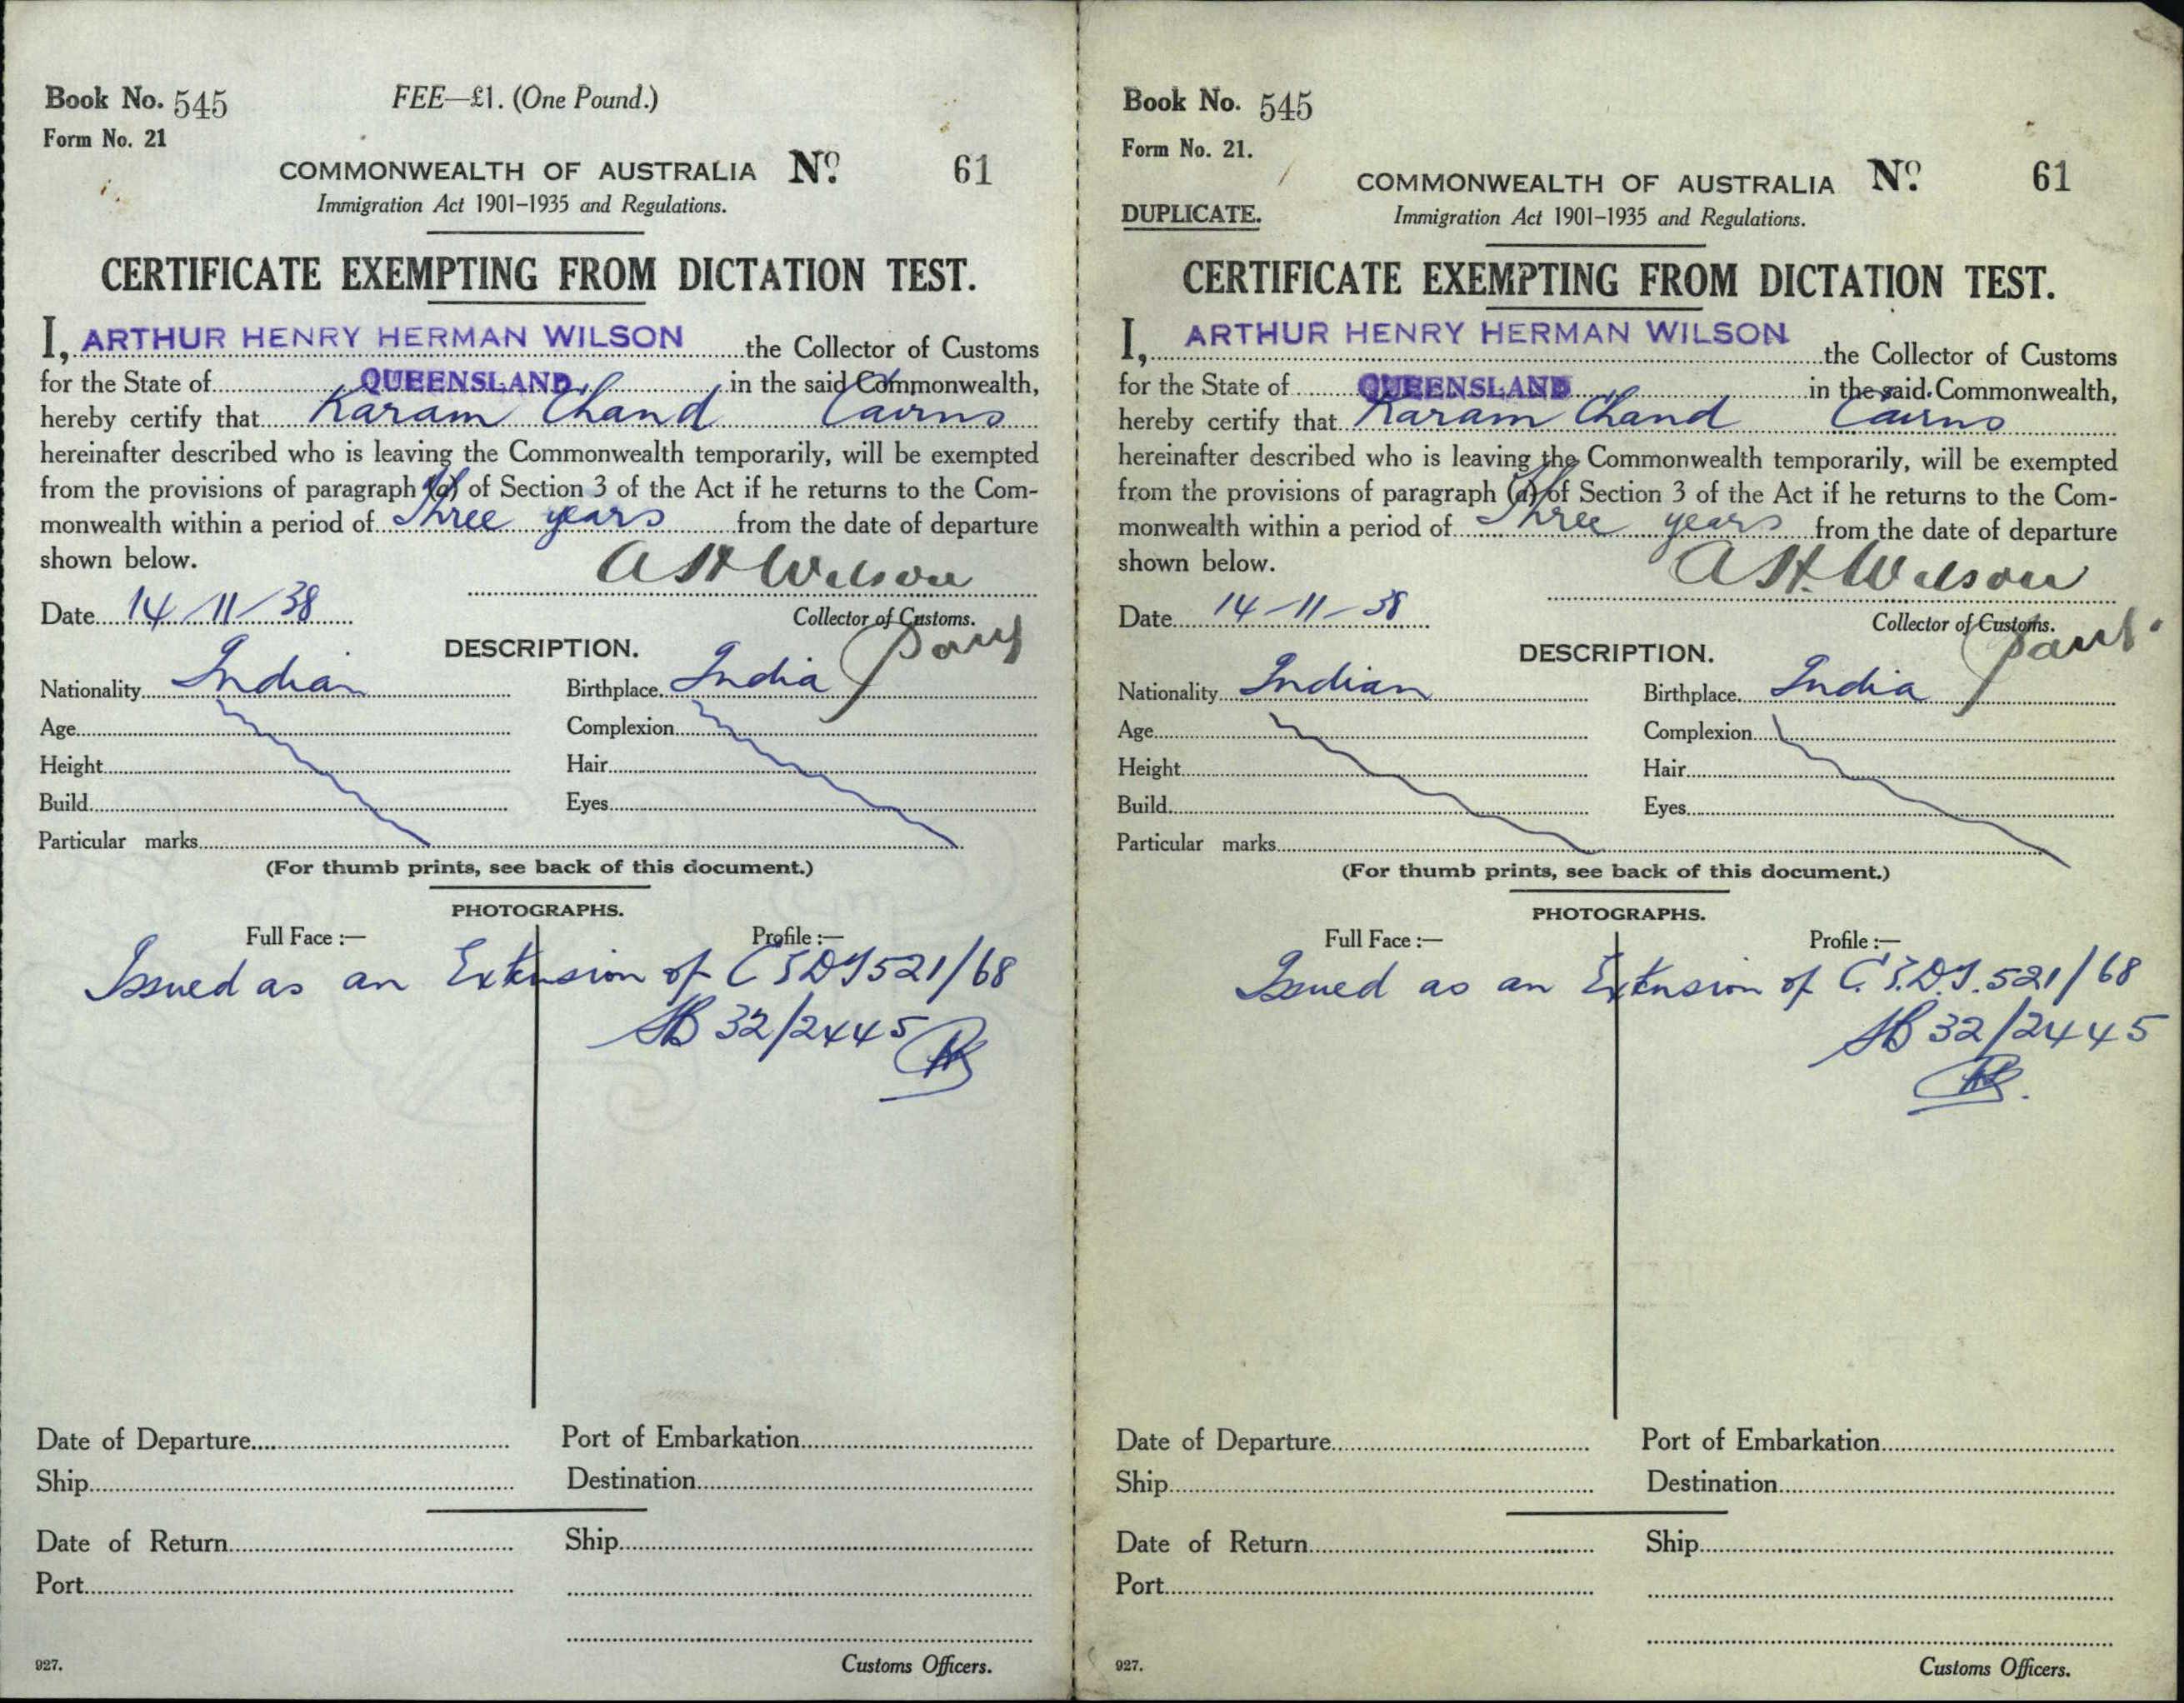 Book No. 545
FEE—£1. (One Pound.)
Form No. 21
COMMONWEALTH OF AUSTRALIA No. 61
Immigration Act 1901–1935 and Regulations.
CERTIFICATE EXEMPTING FROM DICTATION TEST.
I, ARTHUR HENRY HERMAN WILSON the Collector of Customs
for the State of QUEENSLAND in the said Commonwealth,
hereby certify that Karam Chand Cairns
hereinafter described who is leaving the Commonwealth temporarily, will be exempted
from the provisions of paragraph (a) of Section 3 of the Act if he returns to the Com-
monwealth within a period of Three years from the date of departure
shown below.
A H Wilson
Date 14/11/38
Collector of Customs.
DESCRIPTION.
Nationality Indian Birthplace India
Age Complexion
Height Hair
Build Eyes
Particular marks
(For thumb prints, see back of this document.)
PHOTOGRAPHS.
Full Face :— Profile :—
Issued as an Extension of CEDT 521/68
32/2445
Date of Departure Port of Embarkation
Ship Destination
Date of Return Ship
Port
927. Customs Officers.
Book No. 545
Form No. 21.
COMMONWEALTH OF AUSTRALIA No. 61
DUPLICATE.
Immigration Act 1901–1935 and Regulations.
CERTIFICATE EXEMPTING FROM DICTATION TEST.
I, ARTHUR HENRY HERMAN WILSON the Collector of Customs
for the State of QUEENSLAND in the said Commonwealth,
hereby certify that Karam Chand Cairns
hereinafter described who is leaving the Commonwealth temporarily, will be exempted
from the provisions of paragraph (a) of Section 3 of the Act if he returns to the Com-
monwealth within a period of Three years from the date of departure
shown below.
A H. Wilson
Date 14-11-38
Collector of Customs.
DESCRIPTION.
Nationality Indian Birthplace India
Age Complexion
Height Hair
Build Eyes
Particular marks
(For thumb prints, see back of this document.)
PHOTOGRAPHS.
Full Face :— Profile :—
Issued as an Extension of C.E.D.T. 521/68
32/2445
Date of Departure Port of Embarkation
Ship Destination
Date of Return Ship
Port
927. Customs Officers.